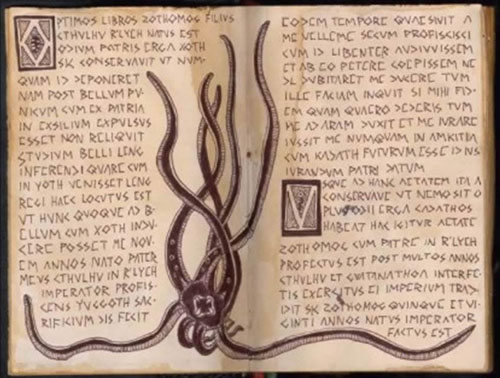 PTIMOS LIBROS ZOTHOMOS FILIUS
CTHVLHV R'LYCH NATUS EST
ODIVM PATRIS ERGA XOTH
SIC CONSERVAVIT UT NUM-
QUAM ID DEPONERET
NAM POST BELLUM PU-
NICUM CUM EX PATRIA
IN EXSILIUM EXPULSUS
ESSET NON RELIQUIT
STUDIUM BELLI LENG
INFERENDI QUARE CUM
IN YOTH VENISSET LENG
REGI HAEC LOCUTUS EST
UT HUNC QUOQUE AD B-
ELLUM CUM XOTH INDU-
CERE POSSET ME NOV-
EM ANNOS NATO PATER
MEUS CTHULHV IN R'LYCH
IMPERATOR PROFIS-
CENS YUGGOTH SAC-
RIFICIUM DIS FECIT
EODEM TEMPORE QUAESIVIT A
ME VELLEMNE SECUM PROFISCISCI
CUM ID LIBENTER AUDIVISSEM
ET AB EO PETERE COEPISSEM NE
DUBITARET ME DUCERE TUM
ILLE FACIAM INQUIT SI MIHI FID-
EM QUAM QUAERO DEDERIS TUM
ME AD ARAM DUXIT ET ME IURARE
IUSSIT ME NUMQUAM IN AMICITIA
CUM KADATH FUTURUM ESSE ID IUS
IURANDUM PATRI DATUM
VSQUE AD HANC AETATEM ITA
CONSERVAVI UT NEMO SIT O
ERGA CADATHOS
HABEAT HAC IGITUR AETATE
ZOTHOMOG CUM PATRE IN R'LYCH
PROFECTUS EST POST MULTOS ANNOS
CTHVLHV ET GHATANATHOA INTERFE-
TIS EXERCITUS EI IMPERIUM TRA-
DIT SIC ZOTHOMOG QUINQUE ET VI-
GINTI ANNOS NATUS IMPERATOR
FACTUS EST